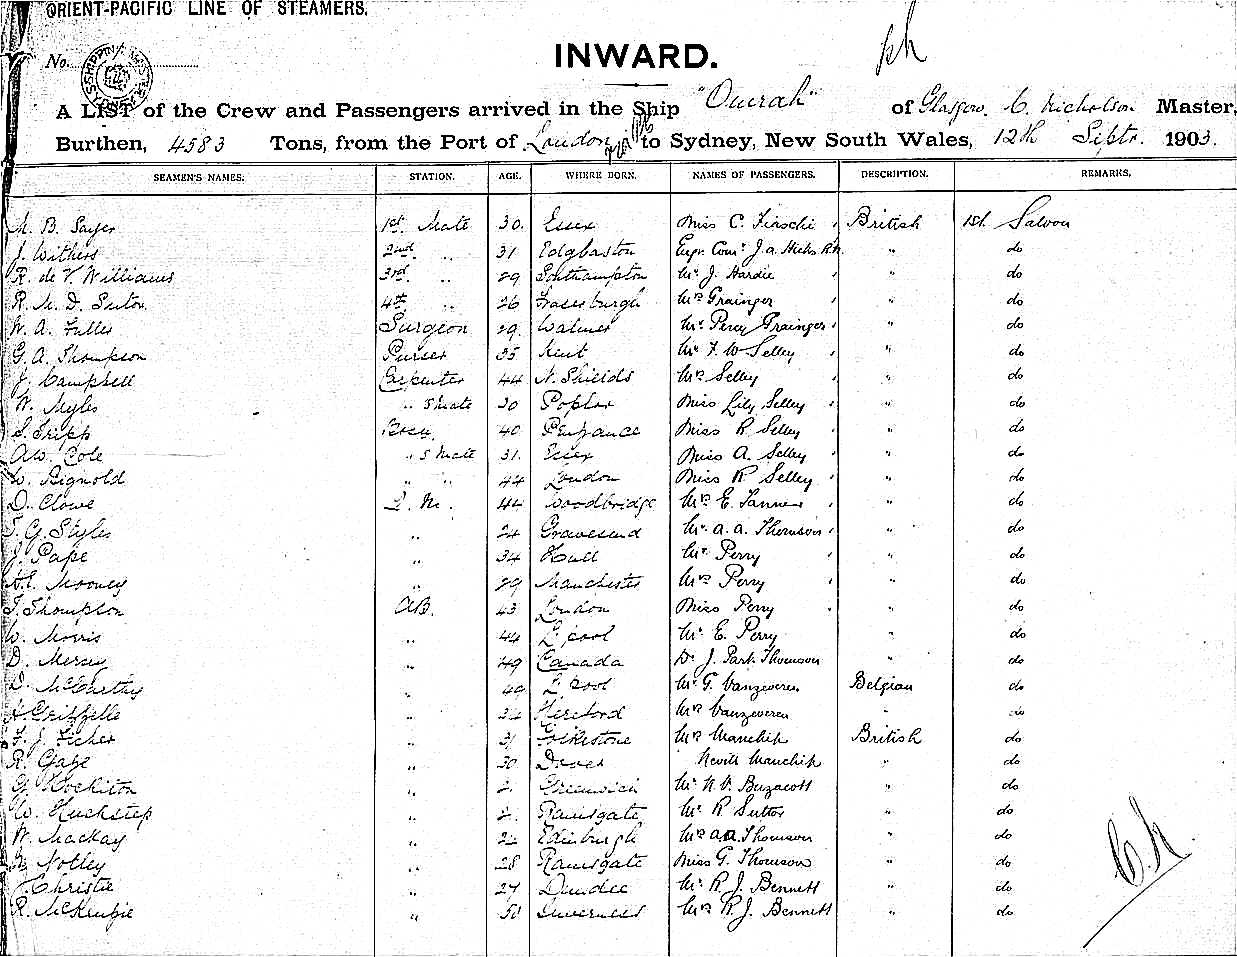 ORIENT-PACIFIC LINE OF STEAMERS.
No.
INWARD.
A LIST of the Crew and Passengers arrived in the Ship "Omrah" of Glasgow, C. Nicholson Master,
Burthen, 4583 Tons, from the Port of London to Sydney, New South Wales, 12th Septr. 1903.
SEAMEN'S NAMES. STATION. AGE. WHERE BORN. NAMES OF PASSENGERS. DESCRIPTION. REMARKS.
M. B. Sayer 1st. Mate 30. Essex Miss C. British 1st. Saloon
J. Withers 2nd " 31 Edgbaston J. A. Hicks R.N. " do
R. de V. Williams 3rd " 29 Southampton Mr. J. Hardie " do
R. M. D. 4th " 26 Fraserburgh Mrs Grainger " do
W. A. Fuller Surgeon 29. Walmer Mr. Percy Grainger " do
G. A. Thompson Purser 35 Kent Mr. F. W Selley " do
J. Campbell Carpenter 44 N. Shields Mrs Selley " do
W. Myles " s Mate 30 Poplar Miss Lily Selley " do
S. Tripp Bosn. 40 Penzance Miss R. Selley " do
A.W. Cole " s Mate 31. Essex Miss A. Selley " do
W. Rignold " " 44 London Miss R Selley " do
D. Clowe Q. M. 44 Woodbridge Mrs E. Tanner " do
T. G. Styles " 24 Gravesend Mr. A. A. Thomson " do
J. Pape " 34 Hull Mr. Perry " do
Mooney " 29 Manchester Mrs Perry " do
T. Thompson AB. 43 London Miss Perry " do
W. Morris " 44 L'pool Mr. E. Perry " do
D. Mercey " 49 Canada Dr. J. Park Thomson " do
D. McCarthy " 40 L'pool Mr. G. Vanzeveren Belgian do
" 34 Hereford Mrs Vanzeveren " do
F. J. Fisher " 31 Folkestone Mrs Manchip British do
R. Gage " 30 Dover Nevill Manchip " do
G. " 2 Greenwich Mr. N. V. Buzacott " do
W. Huckstep " 2 Ramsgate Mr. R Sutton " do
W. Mackay " 22 Edinburgh Mrs AA Thomson " do
Notley " 28 Ramsgate Miss G. Thomson " do
Christie " 27 Dundee Mr. R. J. Bennett " do
R. McKenzie " 50 Inverness Mrs R. J. Bennett " do